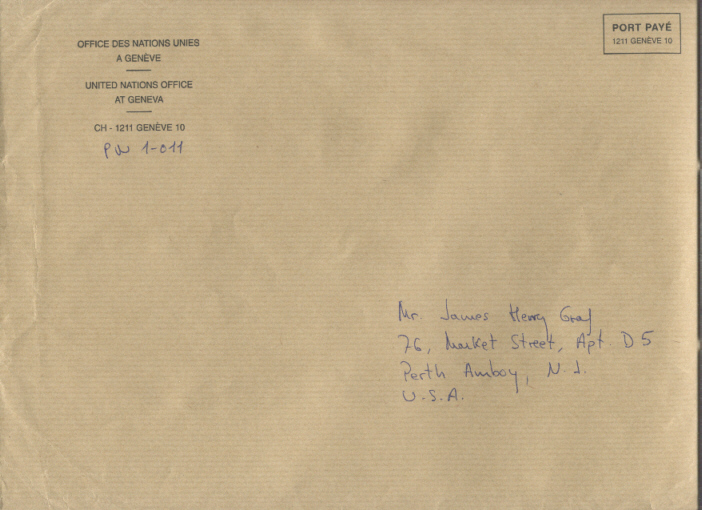 OFFICE DES NATIONS UNIES
A GENÈVE
UNITED NATIONS OFFICE
AT GENEVA
CH - 1211 GENÈVE 10
PW 1-011
PORT PAYÉ
1211 GENÈVE 10
Mr. James Henry Graf
76, Market Street, Apt. D 5
Perth Amboy, N.J.
U.S.A.